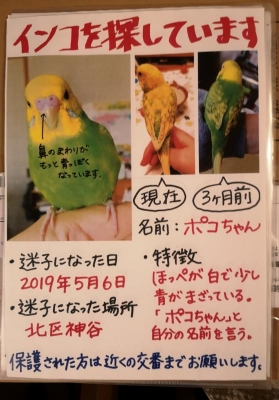 インコを探しています
鼻のまわりが
もっと青っぽく
なっています。
現在
3ヶ月前
名前:ポコちゃん
・迷子になった日
2019年5月6日
・迷子になった場所
北区神谷
・特徴
ほっぺが白で少し
青がまざっている。
「ポコちゃん」と
自分の名前を言う。
保護された方は近くの交番までお願いします。